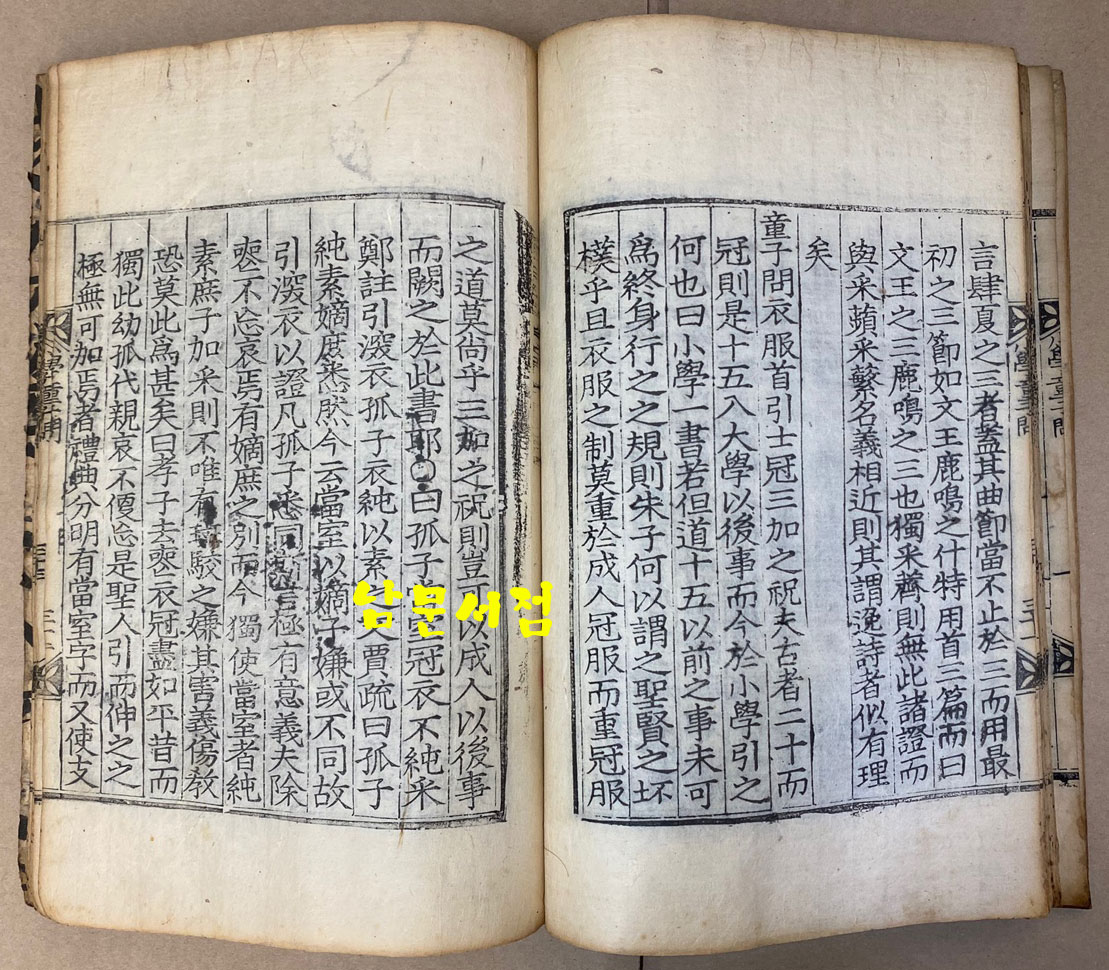 言肆夏之三者蓋其曲節當不止於三而用最
初之三節如文王鹿鳴之什特用首三篇而曰
文王之三鹿鳴之三也獨采薺則無此諸證而
與采蘋采蘩名義相近則其謂逸詩者似有理
矣
童子問衣服首引士冠三加之祝夫古者二十而
冠則是十五入大學以後事而今於小學引之
何也曰小學一書若但道十五以前之事未可
爲終身行之之規則朱子何以謂之聖賢之坯
樸乎且衣服之制莫重於成人冠服而重冠服
之道莫尚乎三加之祝則豈可以成人以後事
而闕之於此書耶○曰孤子當室冠衣不純采
鄭註引深衣孤子衣純以素之文賈疏曰孤子
純素嫡庶悉然今云當室以嫡子嫌或不同故
引深衣以證凡孤子悉同斯言極有意義夫除
喪不忘哀焉有嫡庶之別而今獨使當室者純
素庶子加采則不唯有斑駁之嫌其害義傷敎
恐莫此爲甚矣曰孝子去喪衣冠盡如平昔而
獨此幼孤代親哀不優忘是聖人引而伸之之
極無可加焉者禮曲分明有當室字而又使支
學童問
남문서점